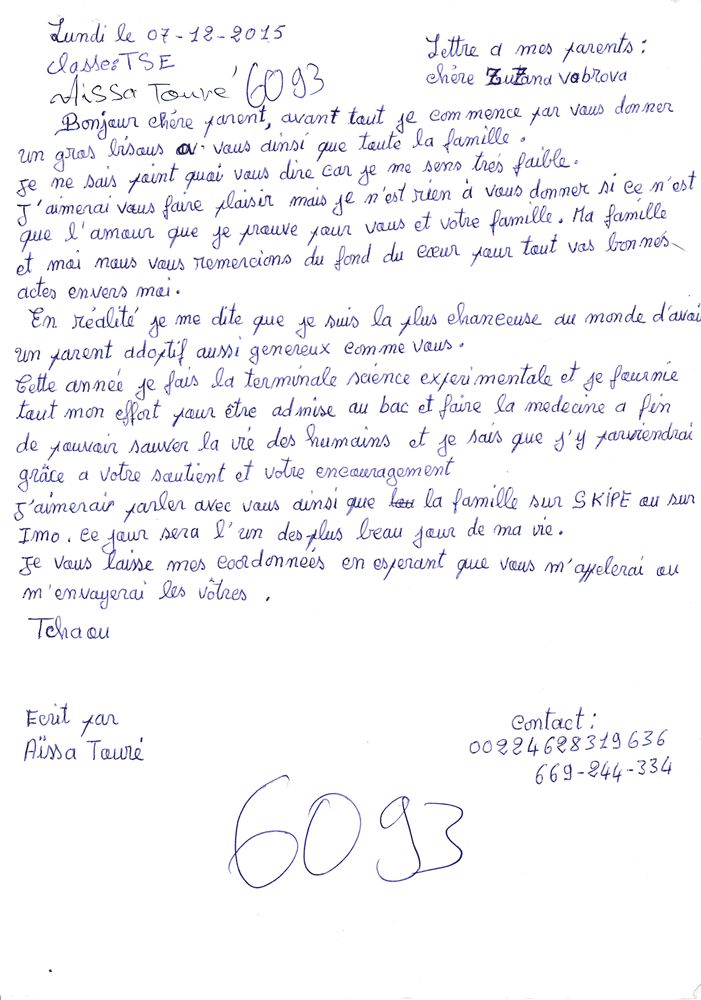 Lundi le 07-12-2015
Classe: TSE
Aissa Touré 6093
Lettre a mes parents :
chère Zuzana Vobrova
Bonjour chère parent, avant tout je commence par vous donner
un gros bisous a vous dainsi que toute la famille.
Je ne sais point quoi vous dire car je me sens très faible.
J'aimerai vous faire plaisir mais je n'est rien à vous donner si ce n'est
que l'amour que je prouve pour vous et votre famille. Ma famille
et moi nous vous remercions du fond du cœur pour tout vos bonnes
actes envers moi.
En réalité je me dite que je suis la plus chanceuse au monde d'avoi
un parent adoptif aussi genereux comme vous.
Cette année je fais la terminale science experimentale et je fournie
tout mon effort pour être admise au bac et faire la medecine a fin
de pouvoir sauver la vie des humains et je sais que j'y parviendrai
grâce a votre soutient et votre encouragement
J'aimerair parler avec vous ainsi que la famille sur SKIPE ou sur
Imo. Ce jour sera l'un des plus beau jour de ma vie.
Je vous laisse mes coordonnées en esperant que vous m'appelerai ou
m'envoyerai les vôtres.
Tchaou
Ecrit par
Aïssa Touré
Contact :
00224628319636
669-244-334
6093